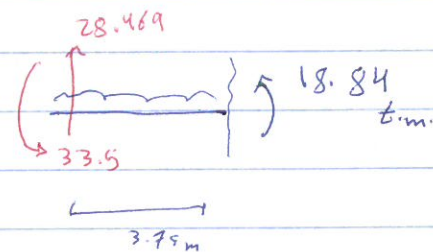 28.469
18.84
t.m.
33.5
3.75 m